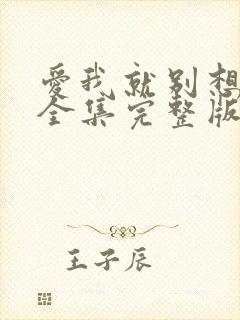 爱我就别想
全集完整版
王子辰